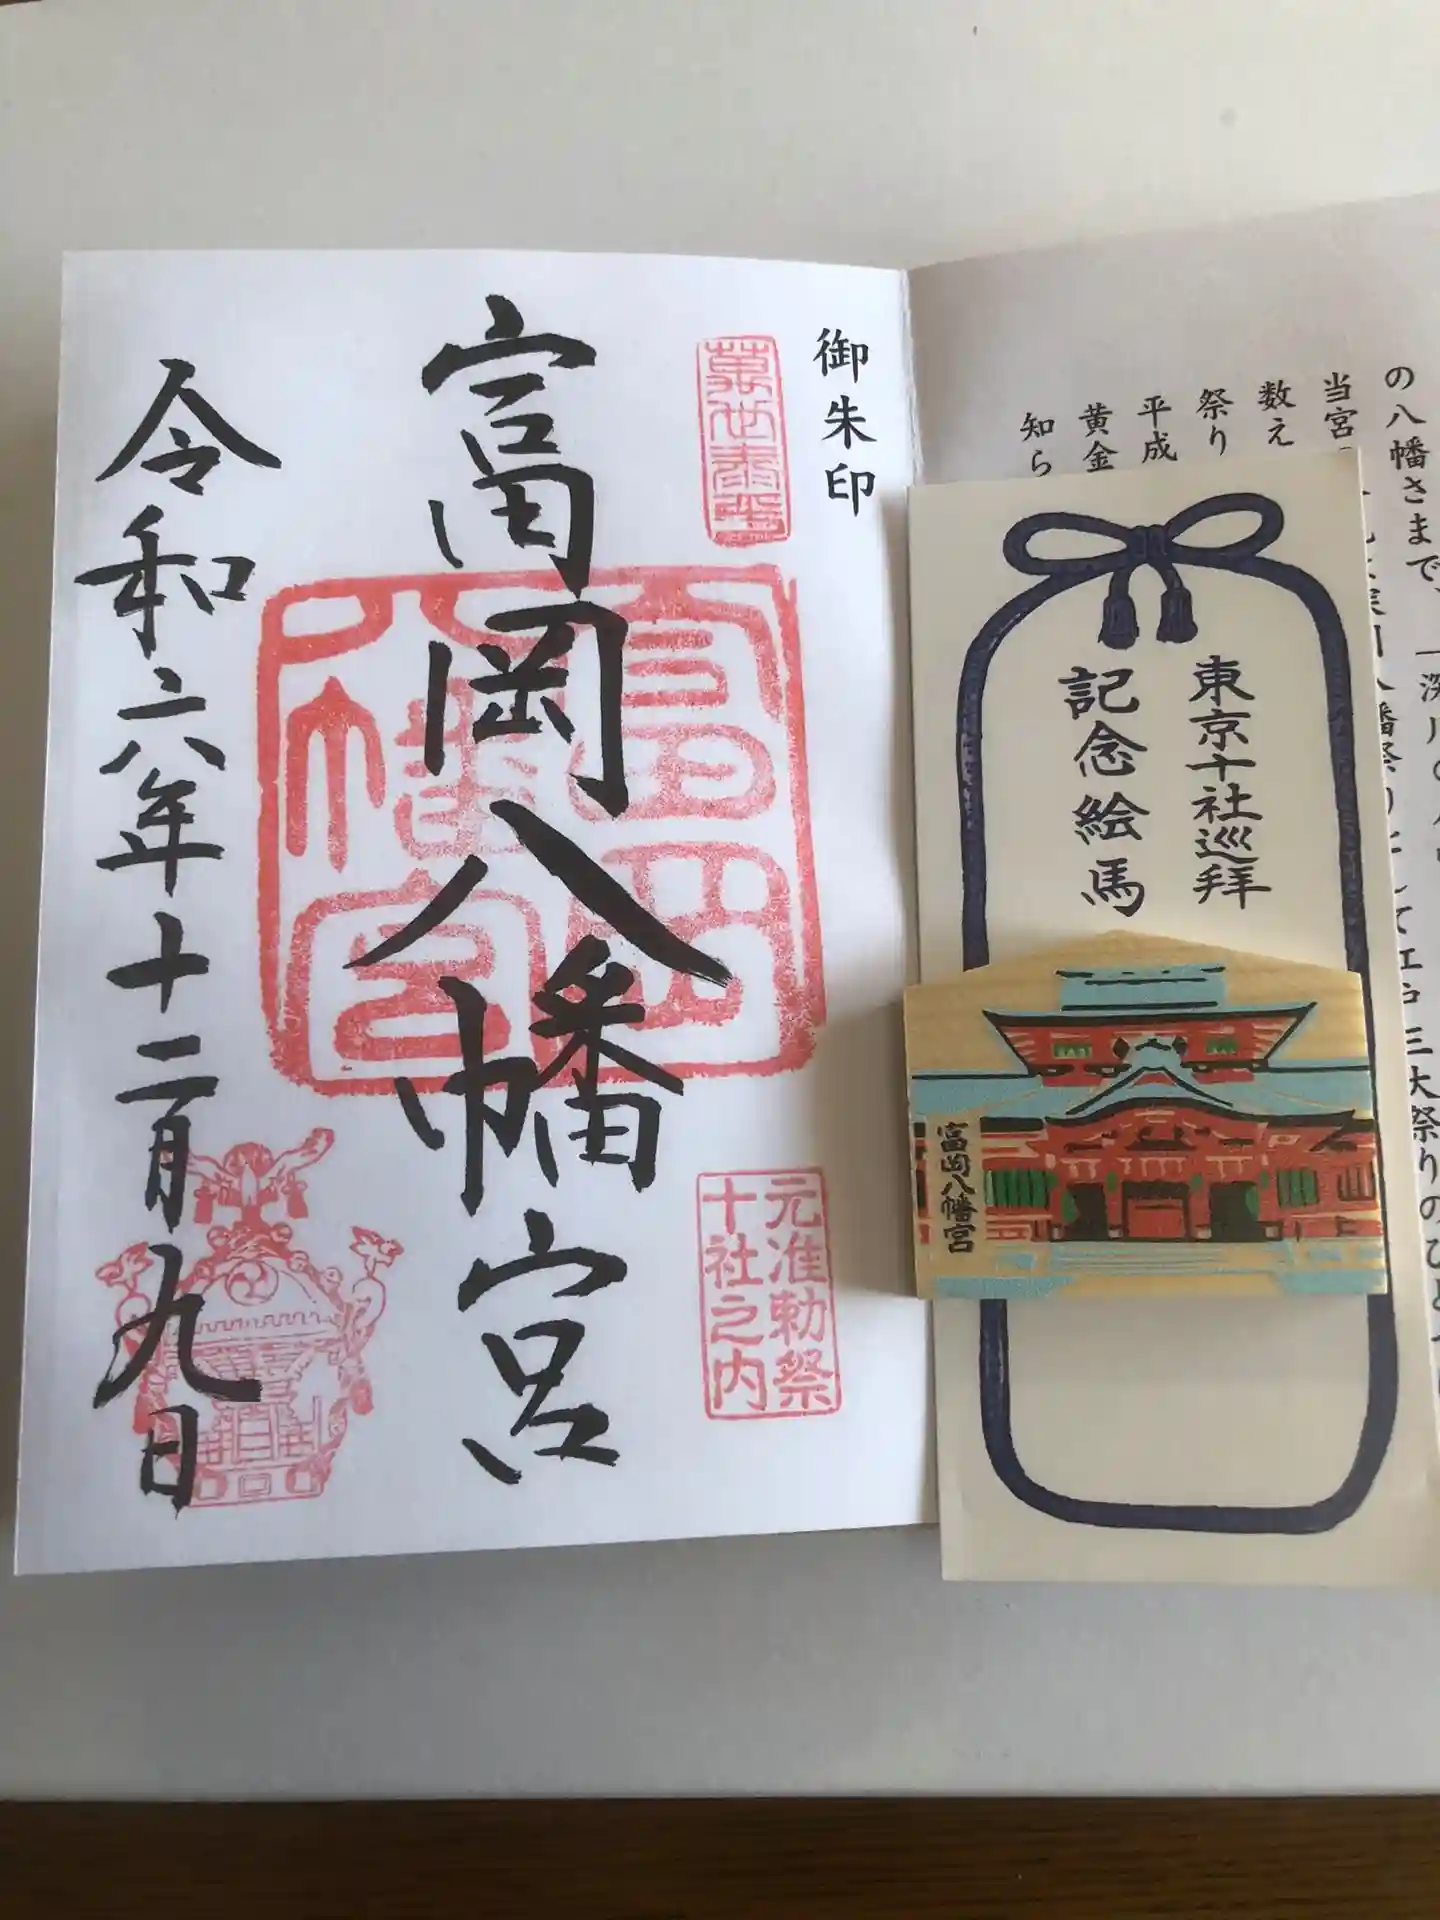 の八幡さまで
当宮
数え
祭り
平成
黄金
知ら
三大祭りのひと
東京十社巡拝
記念絵馬
富岡八幡宮
御朱印
萬世泰平
元准勅祭
十社之内
富岡
八幡宮
富岡八幡宮
令和六年十二月九日